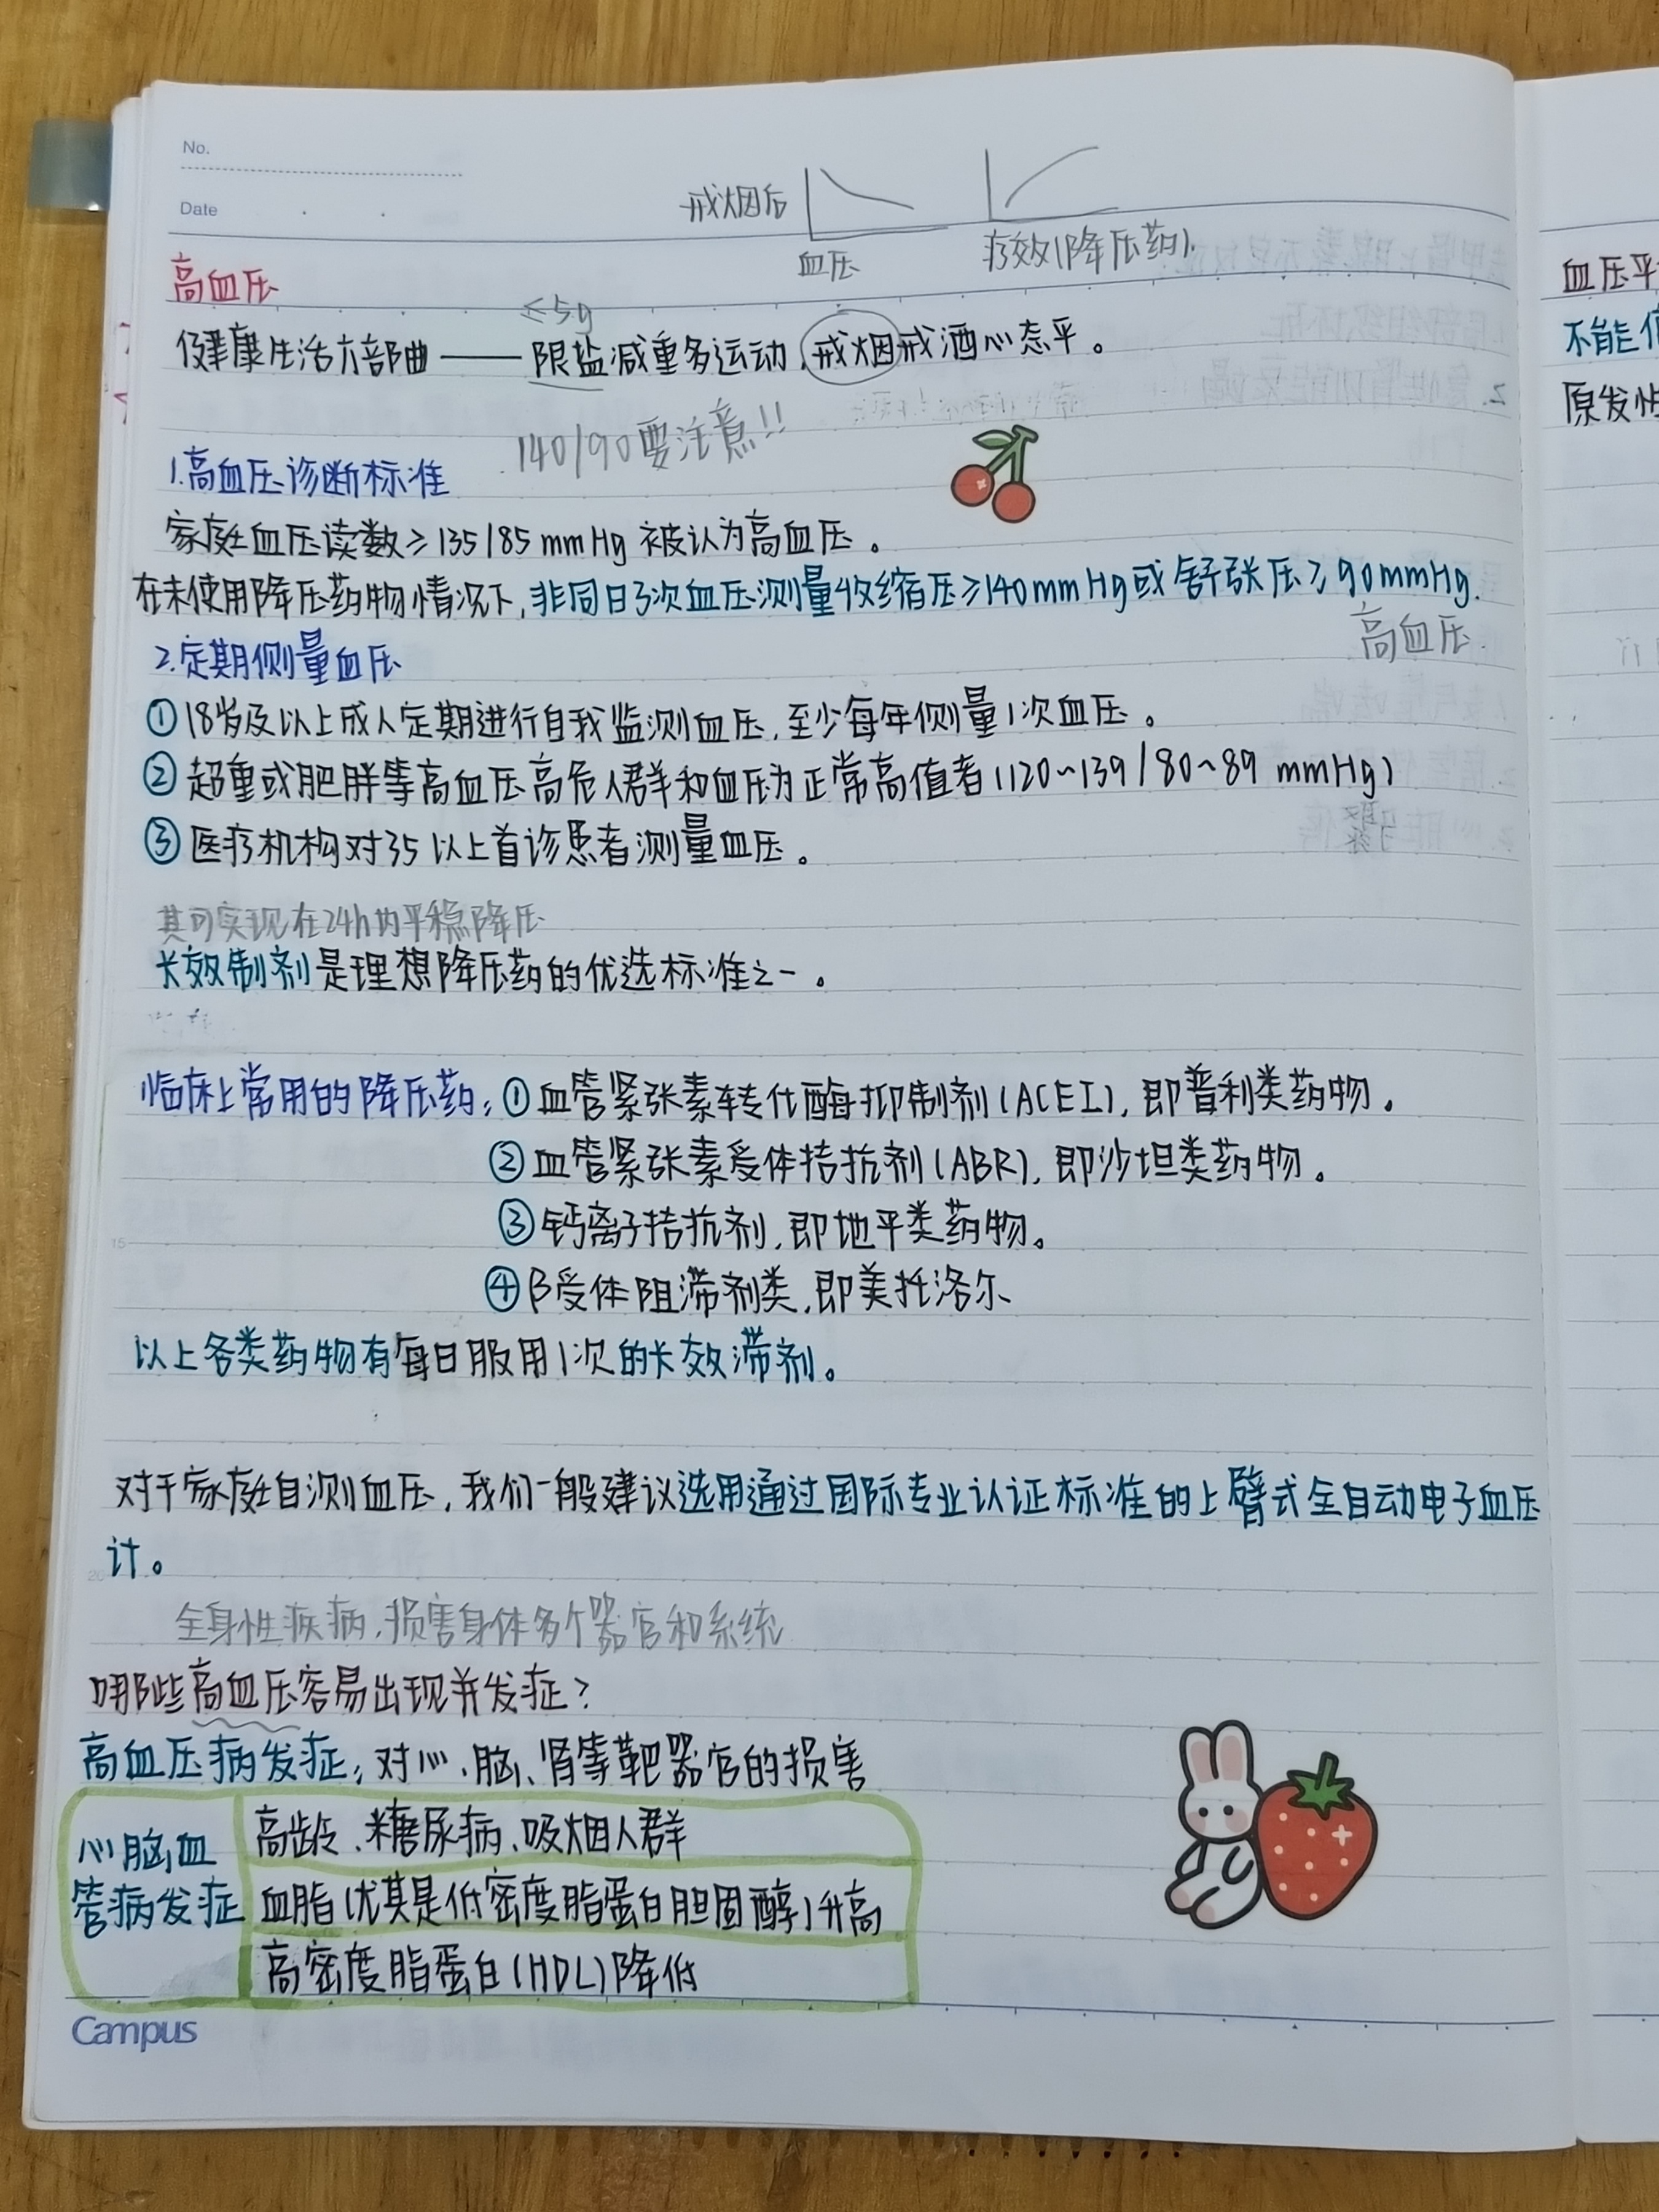 No.
Date
戒烟后
血压
疗效(降压药)
高血压
≤5g
健康生活六部曲——限盐减重多运动,戒烟戒酒心态平。
140/90要注意!!
1.高血压诊断标准
家庭血压读数≥135/85mmHg 被认为高血压。
在未使用降压药物情况下,非同日3次血压测量收缩压≥140mmHg或舒张压≥90mmHg.
高血压.
2.定期侧量血压
①18岁及以上成人定期进行自我监测血压,至少每年侧量1次血压。
②超重或肥胖等高血压高危人群和血压为正常高值者(120~139/80~89 mmHg)
③医疗机构对35以上首诊患者测量血压。
其可实现在24h内平稳降压
长效制剂是理想降压药的优选标准之一。
临床上常用的降压药:①血管紧张素转代酶抑制剂(ACEI),即普利类药物。
②血管紧张素受体拮抗剂(ABR),即沙坦类药物。
③钙离子拮抗剂,即地平类药物。
④β受体阻滞剂类,即美托洛尔
以上各类药物有每日服用1次的长效滞剂。
15
对于家庭自测血压,我们一般建议选用通过国际专业认证标准的上臂式全自动电子血压
计。
20
全身性疾病,损害身体多个器官和系统
哪些高血压容易出现并发症?
高血压病发症:对心、脑、肾等靶器官的损害
心脑血
管病发症
高龄、糖尿病、吸烟人群
血脂(尤其是低密度脂蛋白胆固醇)升高
高密度脂蛋白(HDL)降低
Campus
血压平
不能
原发性